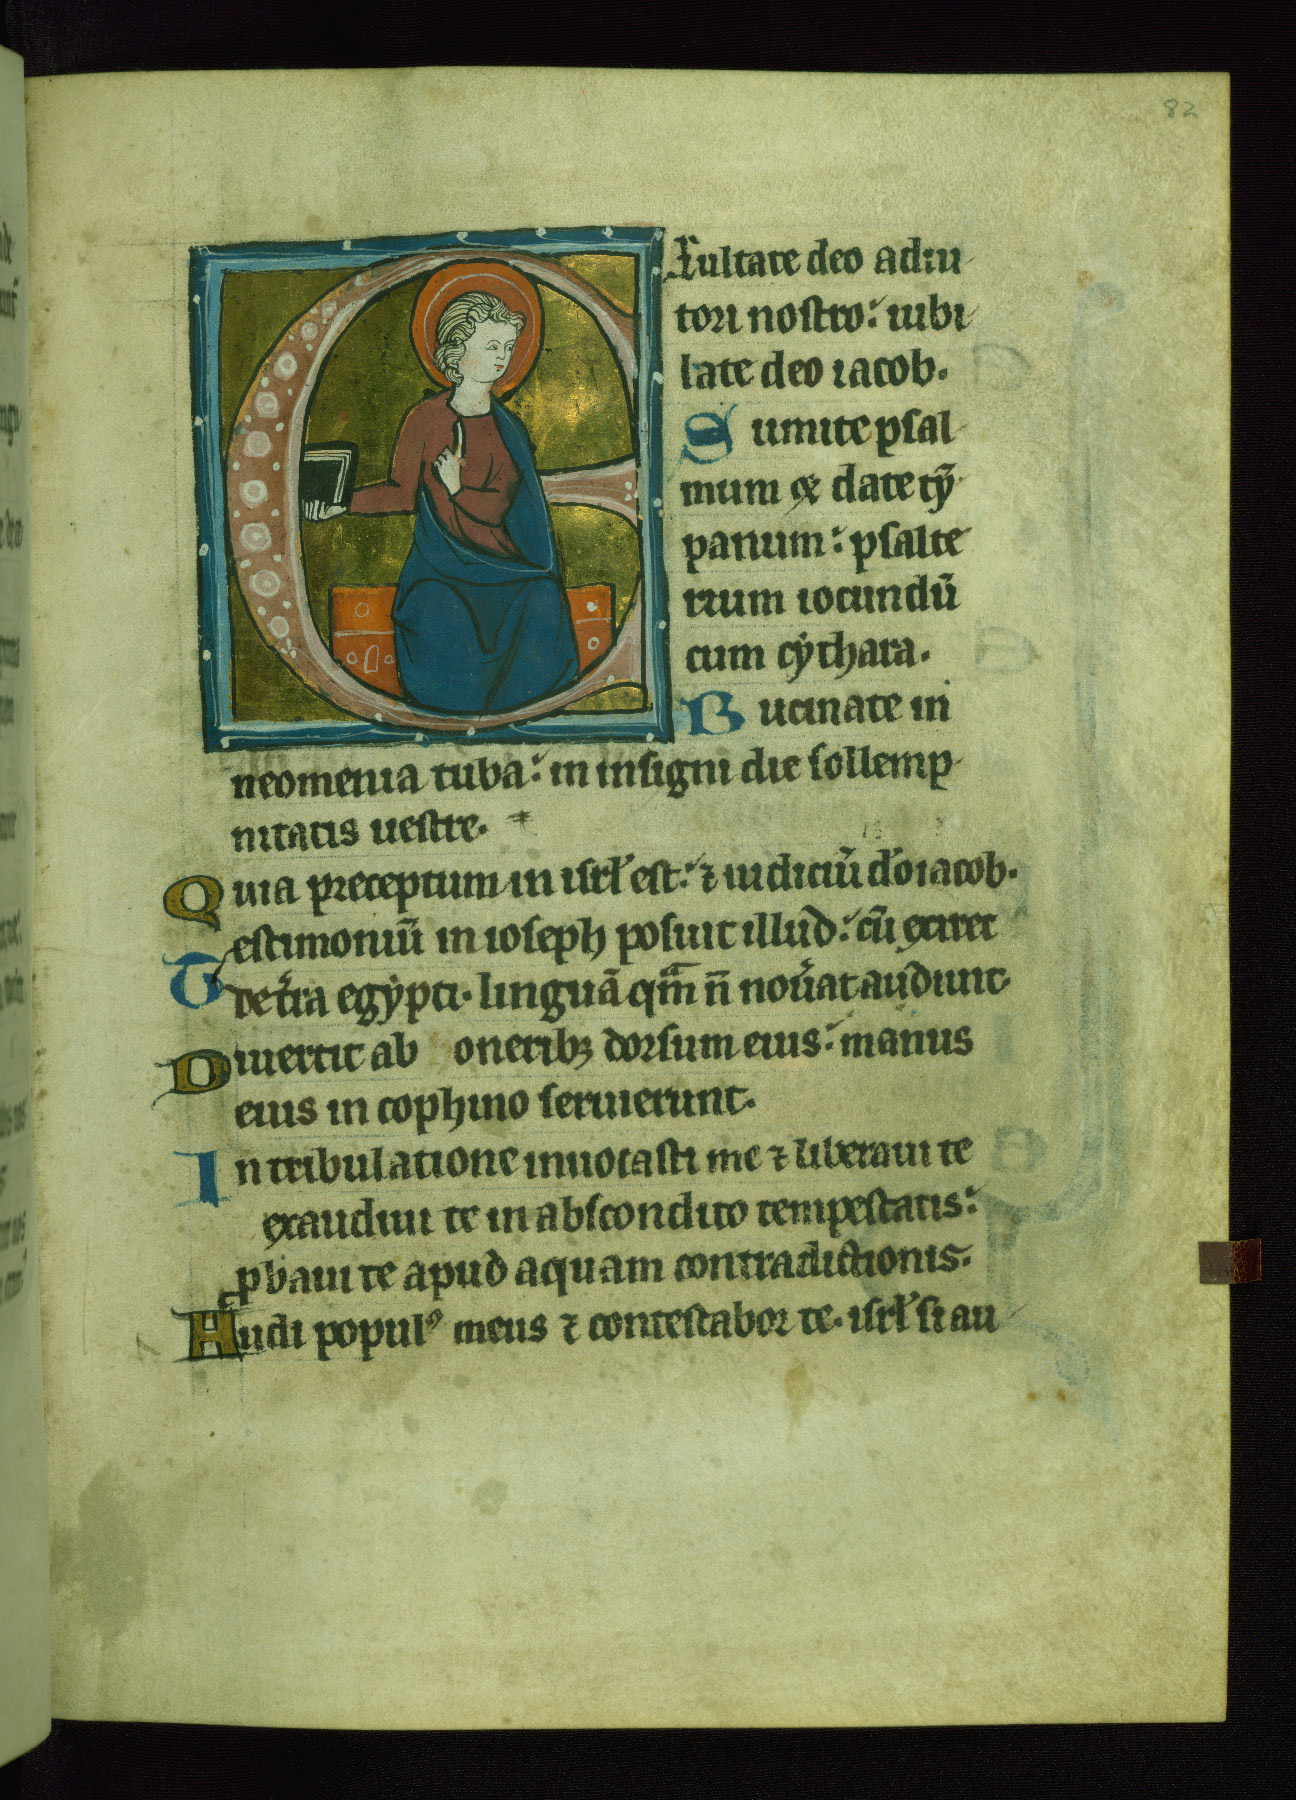 82
Exultate deo adiu
tori nostro: iubi
late deo iacob.
Sumite psal
mum et date ty̅
panum: psalte
rium iocundu̅
cum cythara.
Bucinate in
neomenia tuba: in insigni die sollemp
nitatis uestre.
Quia preceptum in isrl̅ est: ⁊ iudiciu̅ d̅o iacob.
Testimoniu̅ in ioseph posuit illud: cu̅ exiret
de t̅ra egypti. lingua̅ qm̅ n̅ nou̅at audiuit
Diuertit ab oneribꝫ dorsum eius: manus
eius in cophino seruierunt.
In tribulatione inuocasti me ⁊ liberaui te
exaudiui te in abscondito tempestatis:
pbaui te apud aquam contradictionis.
Audi populꝰ meus ⁊ contestabor te. isrl̅ si au